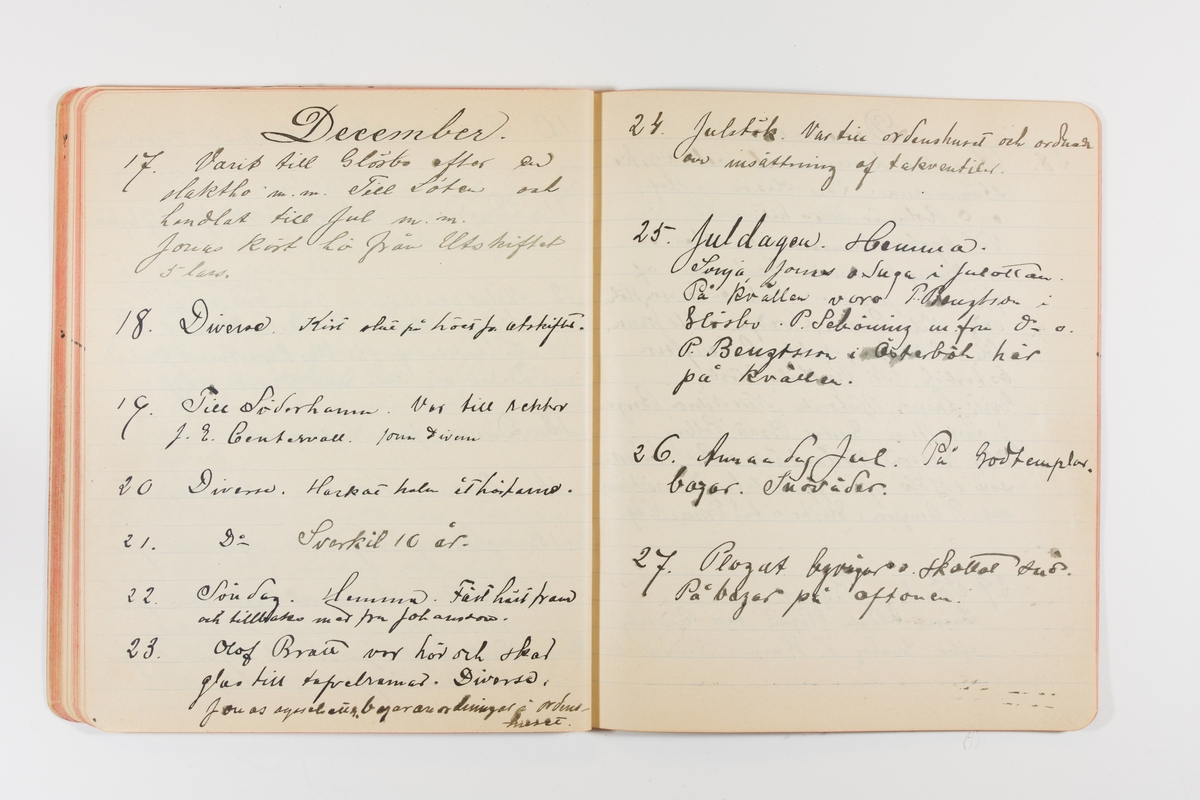 December.
17. Varit till Glösbo efter en
slaktko m.m. Till Löten och
handlat till Jul m.m.
Jonas kört hö från Utskiftet
5 lass.
18. Diverse. Kört på höet fr. utskiftet.
19. Till Söderhamn. Var till rektor
J. E. Centervall.
20 Diverse. Hackat halm åt hästarne.
21. Do Sverkil 10 år.
22. Söndag. Hemma. Fäst häst fram
och tillbaka med fru Johansson.
23. Olof Bratt var här och skar
glas till tafvelramar. Diverse.
Jonas bazaranordningar i ordens-
huset.
24. Julstök. Var till ordenshuset och ordnade
om insättning af takventiler.
25. Juldagen. Hemma.
Sonja, Jonas o Inga i Julottan.
På kvällen voro P. Bengtson i
Glösbo. P. Schöning m. fru Do o.
P. Bengtsson i Österböle här
på kvällen.
26. Annan dag Jul. På Godtemplar-
bazar. Snöväder.
27. Plogat byvägar o. skottat snö.
På bazar på aftonen.